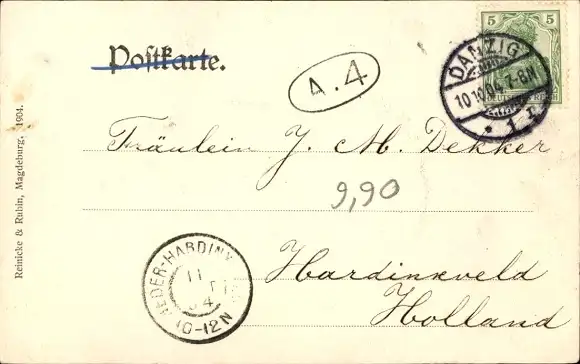 Postkarte.
A.4
5 5
DEUTSCHES REICH
DANZIG
10.10.04. 7-8N
* 1 r
Fräulein J. M. Dekker
9,90
Hardinxveld
Holland
NEDER-HARDINX
11
04
10-12N
Reinicke & Rubin, Magdeburg. 1904.